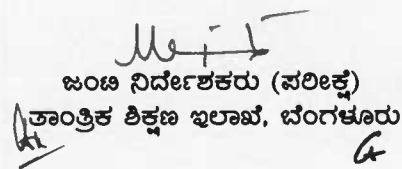 ಜಂಟಿ ನಿರ್ದೇಶಕರು (ಪರೀಕ್ಷೆ)
ತಾಂತ್ರಿಕ ಶಿಕ್ಷಣ ಇಲಾಖೆ, ಬೆಂಗಳೂರು